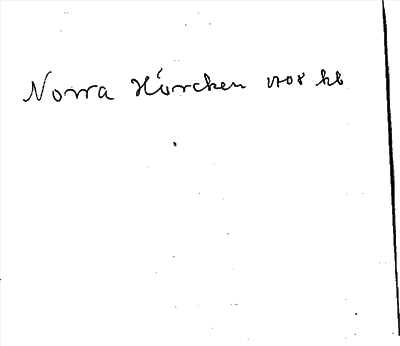 Norra Hörcken 1708 kb